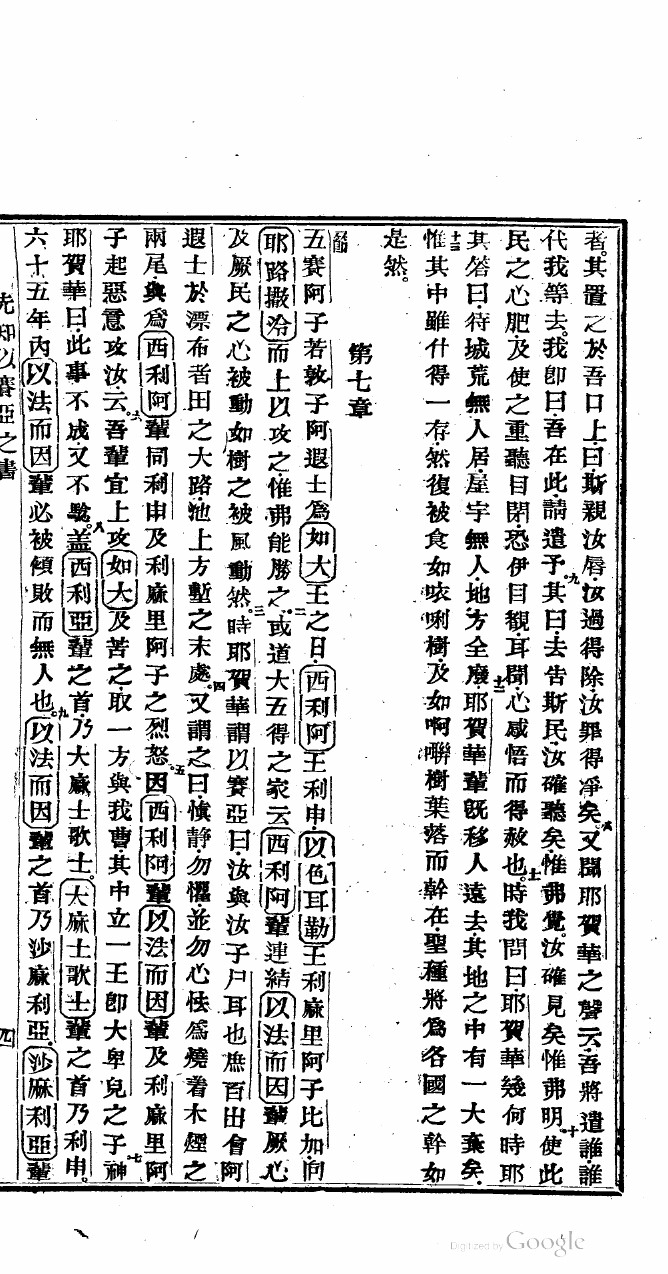 者。其置之於吾口上曰斯親汝唇汝過得除汝罪得净矣。八又聞耶賀華之聲云吾將遣誰誰
代我等去。我卽曰吾在此請遣予。九其曰去告斯民汝確聽矣惟弗覺。汝確見矣惟弗明。十使此
民之心肥及使之重聽目閉恐伊目觀耳聞心感悟而得赦也。十一時我問曰耶賀華幾何時耶
其答曰待城荒無人居屋宇無人地方全廢。十二耶賀華輩旣移人遠去其地之中有一大棄矣。
十三惟其中雖什得一存然復被食如唻唎樹及如啊嘞樹葉落而幹在聖種將爲各國之幹如
是然。
第七章
五賽阿子若敦子阿遐士爲如大王之日西利阿王利申以色耳勒王利麻里阿子比加向
耶路撒冷而上以攻之惟弗能勝之。二或道大五得之家云西利阿輩連結以法而因輩厥心
及厥民之心被動如樹之被風動然。三時耶賀華謂以賽亞曰汝與汝子尸耳也庶百出會阿
遐士於漂布者田之大路池上方塹之末處。四又謂之曰愼静勿懼並勿心怯爲燒着木煙之
兩尾與爲西利阿輩同利申及利麻里阿子之烈怒。五因西利阿輩以法而因輩及利麻里阿
子起惡意攻汝云。六吾輩宜上攻如大及苦之取一方與我曹其中立一王卽大卑兒之子。七神
耶賀華曰此事不成又不騐。八盖西利亞輩之首乃大麻士歌士。大麻士歌士輩之首乃利申。
六十五年內以法而因輩必被傾敗而無人也。九以法而因輩之首乃沙麻利亞。沙麻利亞輩
先知以賽亞之書
四
Digitized by Google